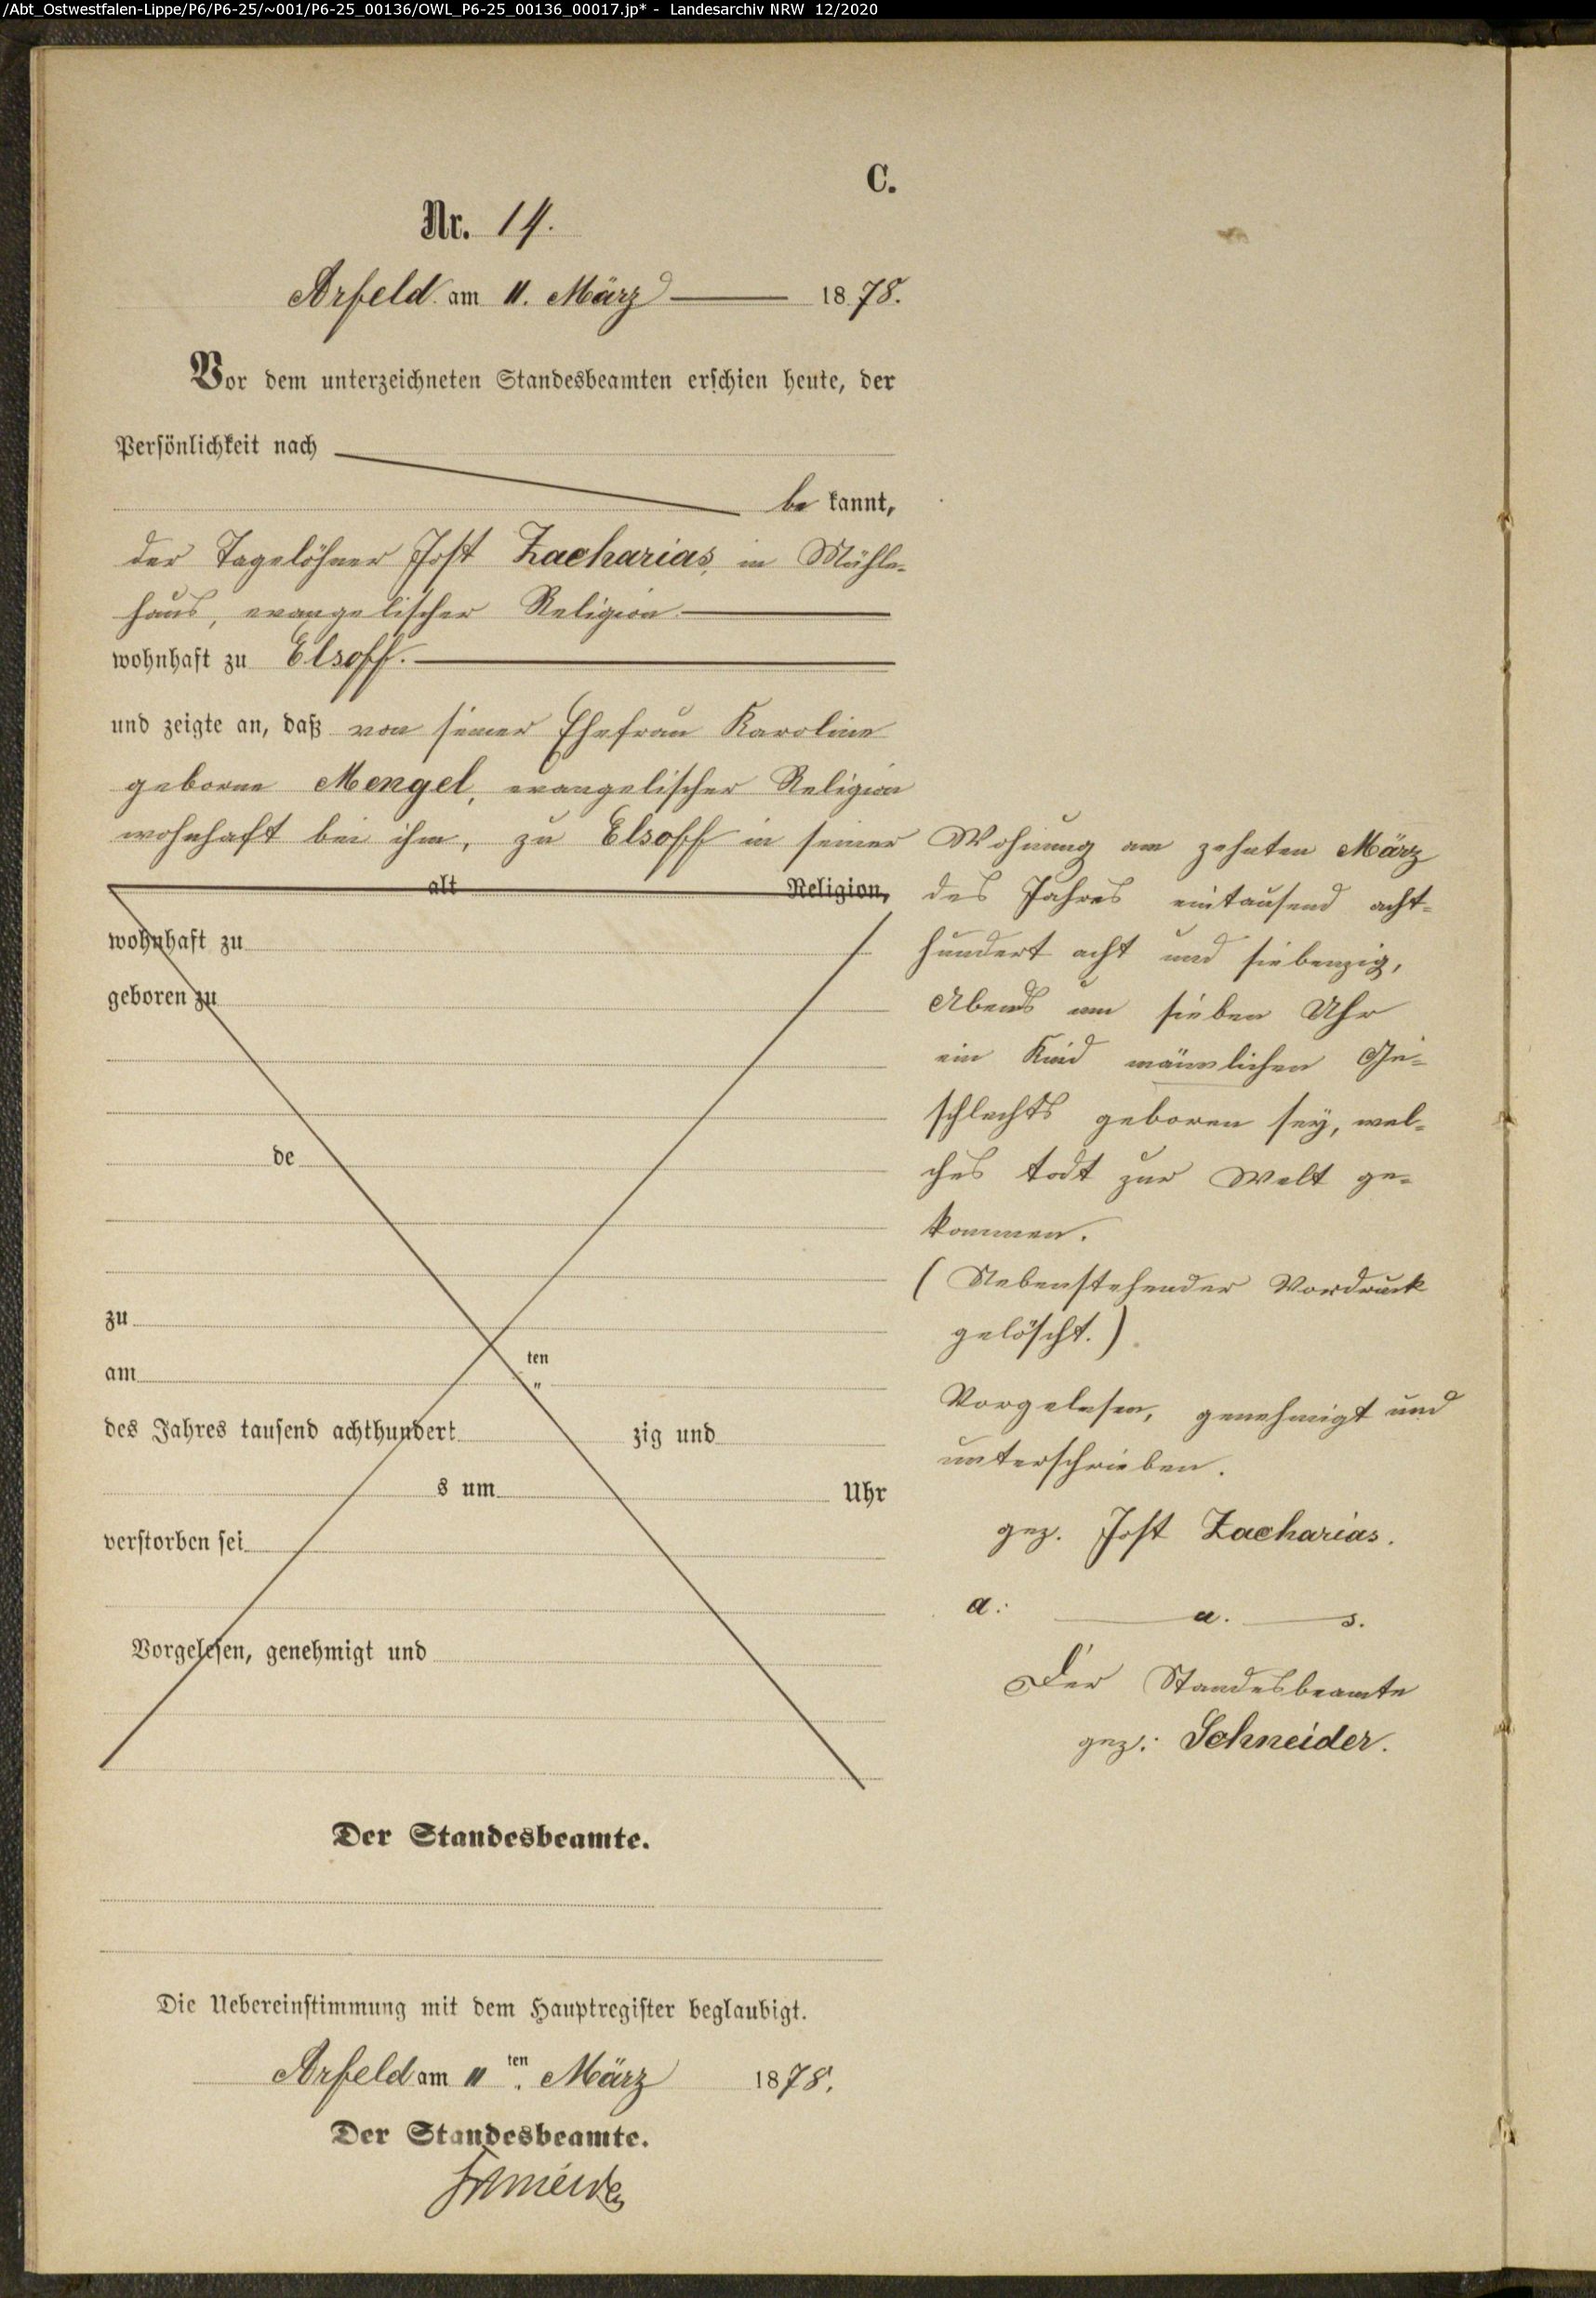 /Abt_Ostwestfalen-Lippe/P6/P6-25/~001/P6-25_00136/OWL_P6-25_00136_00017.jp* - Landesarchiv NRW 12/2020
C.
Nr. 14.
Arfeld am 11. März 1878.
Vor dem unterzeichneten Standesbeamten erschien heute, der
Persönlichkeit nach
be kannt,
der Tagelöhner Jost Zacharias, in Mühle-
haus, evangelischer Religion
wohnhaft zu Elsoff.
und zeigte an, daß von seiner Ehefrau Karoline
geborne Mengel, evangelischer Religion
wohnhaft bei ihm, zu Elsoff in seiner Wohnung am zehnten März
des Jahres eintausend acht-
hundert acht und siebenzig,
Abends um sieben Uhr
ein Kind männlichen Ge-
schlechts geboren sey, wel-
ches todt zur Welt ge-
kommen.
(Nebenstehender Vordruck
gelöscht.)
Vorgelesen, genehmigt und
unterschrieben.
gez. Jost Zacharias.
a: a. s.
Der Standesbeamte
gez: Schneider.
alt Religion,
wohnhaft zu
geboren zu
de
zu
am ten
des Jahres tausend achthundert zig und
s um Uhr
verstorben sei
Vorgelesen, genehmigt und
Der Standesbeamte.
Die Uebereinstimmung mit dem Hauptregister beglaubigt.
Arfeld am 11ten. März 1878.
Der Standesbeamte.
Schneider